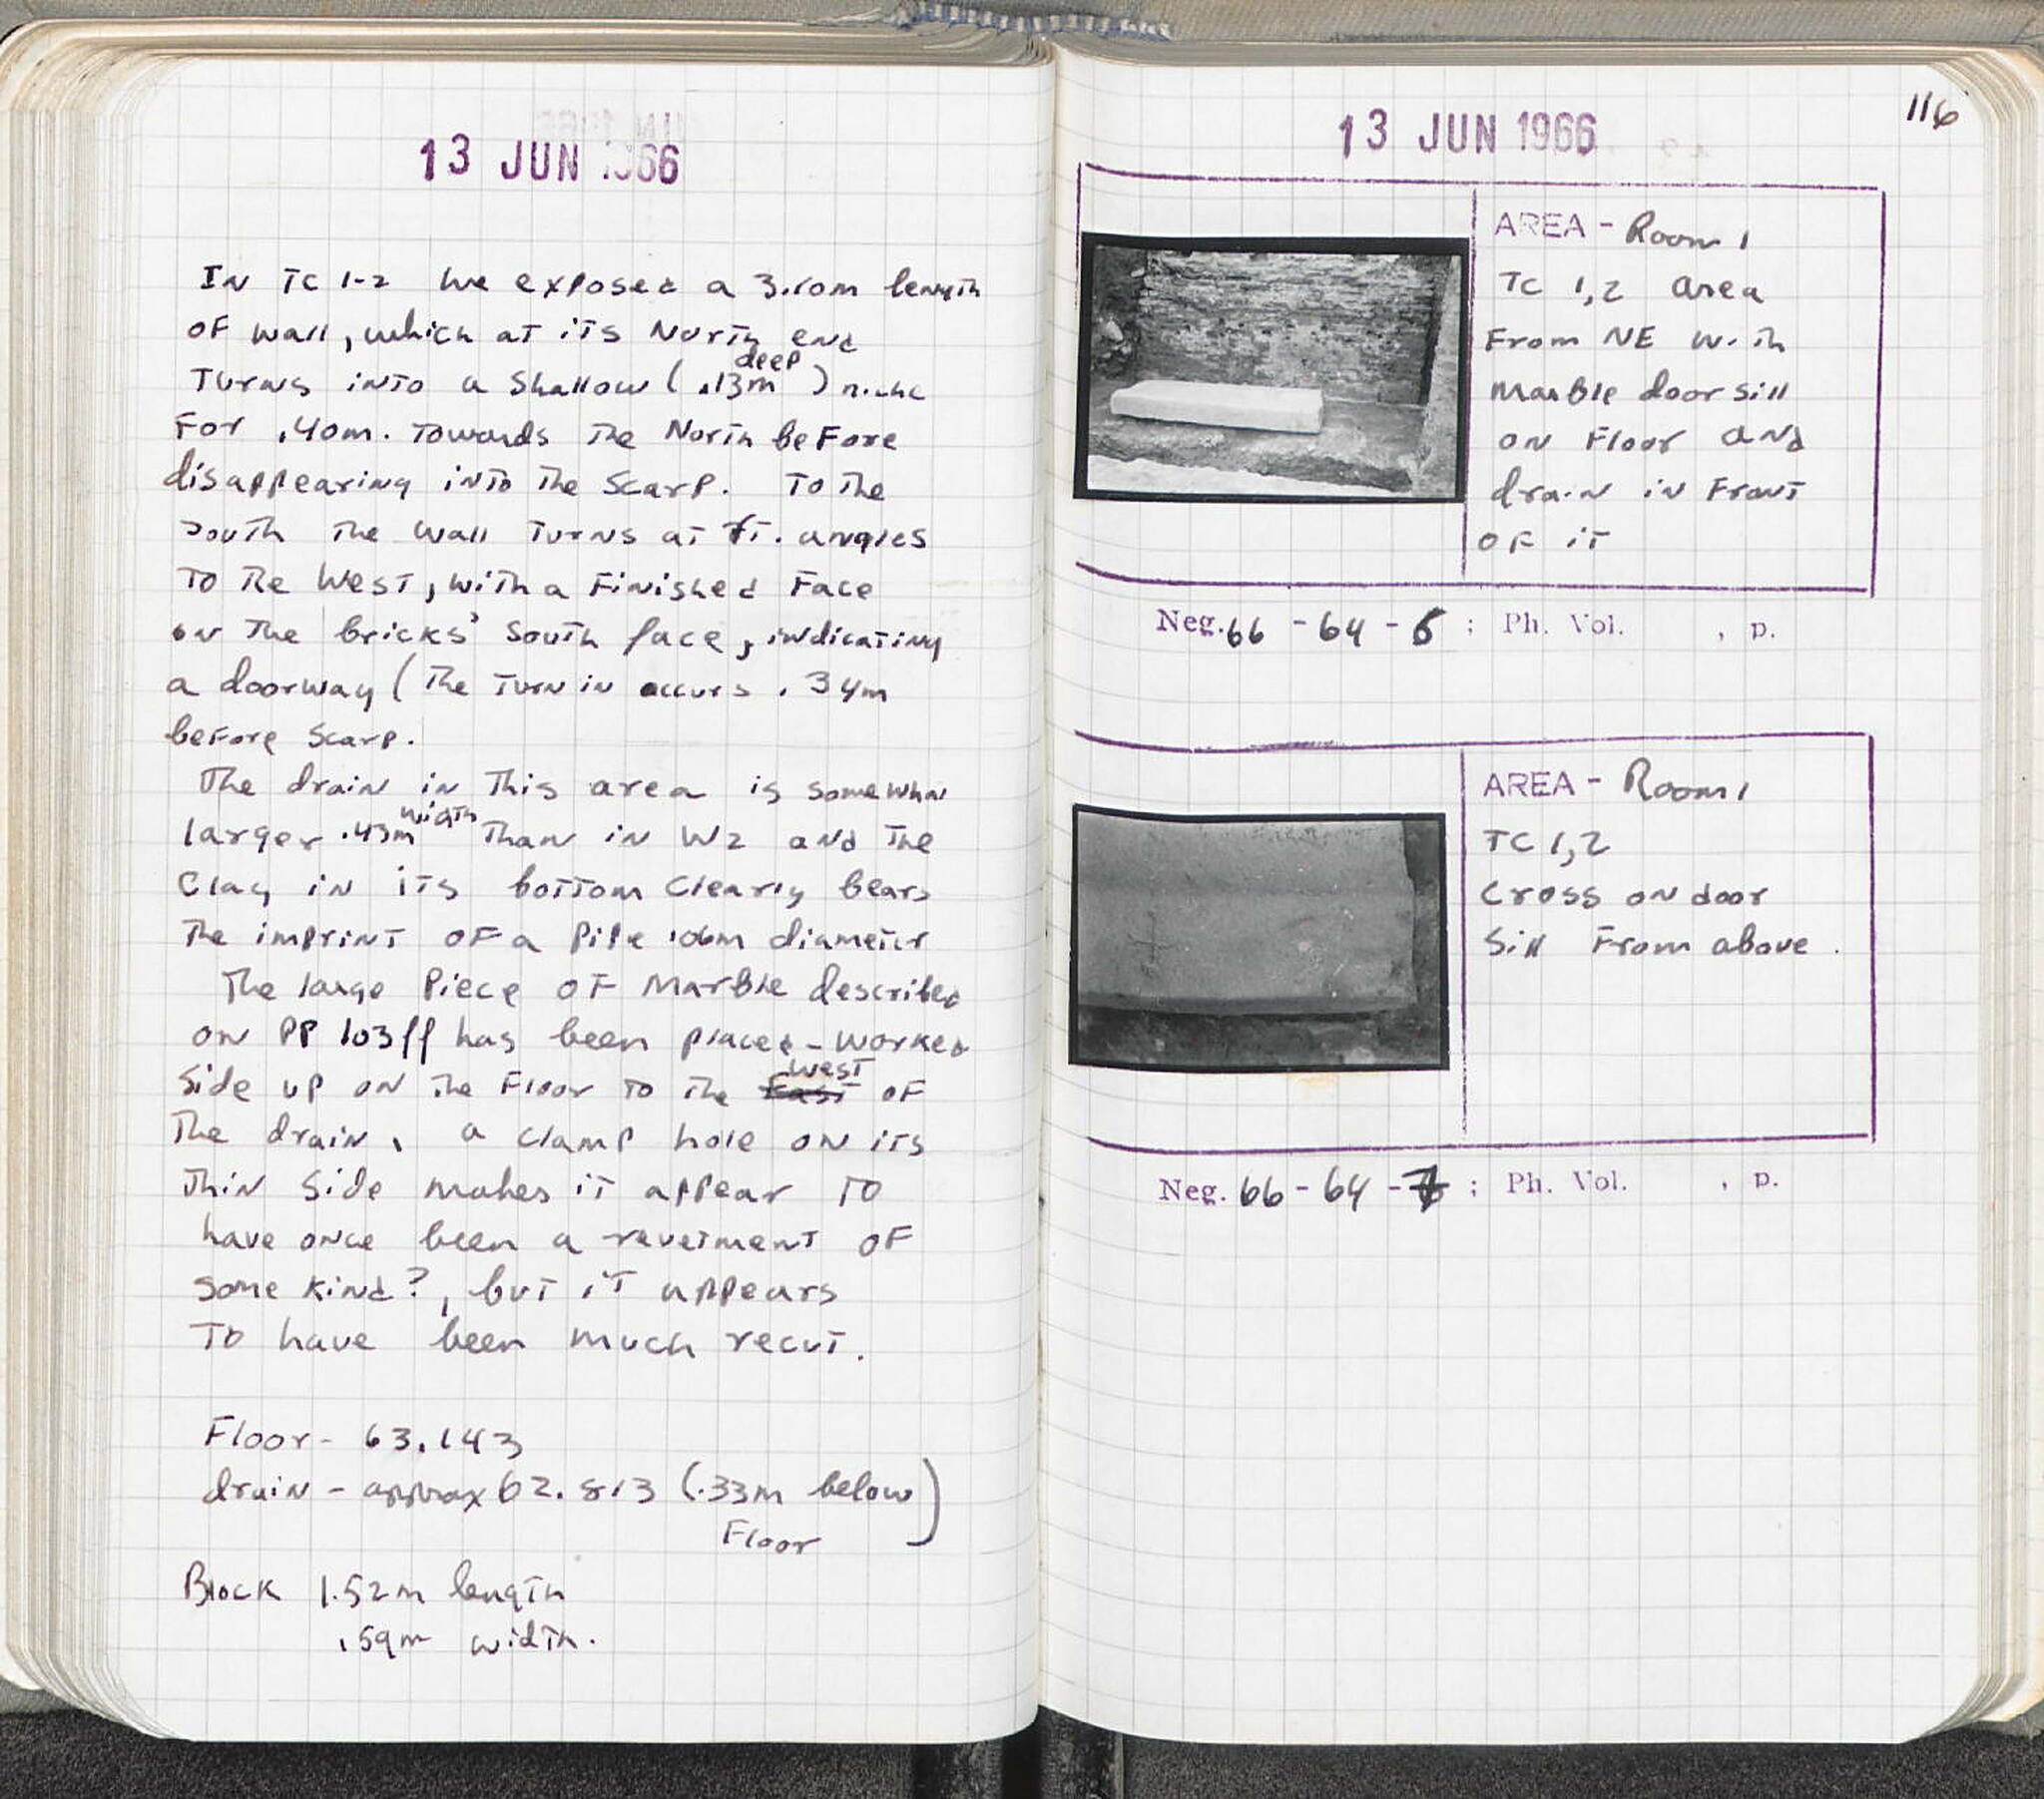 13 JUN 1966
In TC 1-2 we exposed a 3.10m length
of wall, which at its North end
deep
turns into a shallow (.13m ) niche
for .40m. towards the North before
disappearing into the scarp. To the
south the wall turns at rt. angles
to the West, with a finished face
on the bricks' south face, indicating
a doorway (the turn in occurs .34m
before scarp.
The drain in this area is somewhat
width
larger .43m than in W2 and the
clay in its bottom clearly bears
the imprint of a pipe .06m diameter
The large piece of marble described
on PP 103ff has been placed - worked
west
side up on the floor to the East of
the drain. a clamp hole on its
thin side makes it appear to
have once been a revetment of
some kind?, but it appears
to have been much recut.
Floor - 63.143
drain - approx 62.813 (.33m below
Floor)
Block 1.52m length
.59m width.
116
13 JUN 1966
AREA - Room 1
TC 1,2 area
From NE with
marble door sill
on floor and
drain in front
of it
Neg. 66 - 64 - 6 ; Ph. Vol. , p.
AREA - Room 1
TC 1,2
Cross on door
sill from above.
Neg. 66 - 64 - 7 ; Ph. Vol. , p.